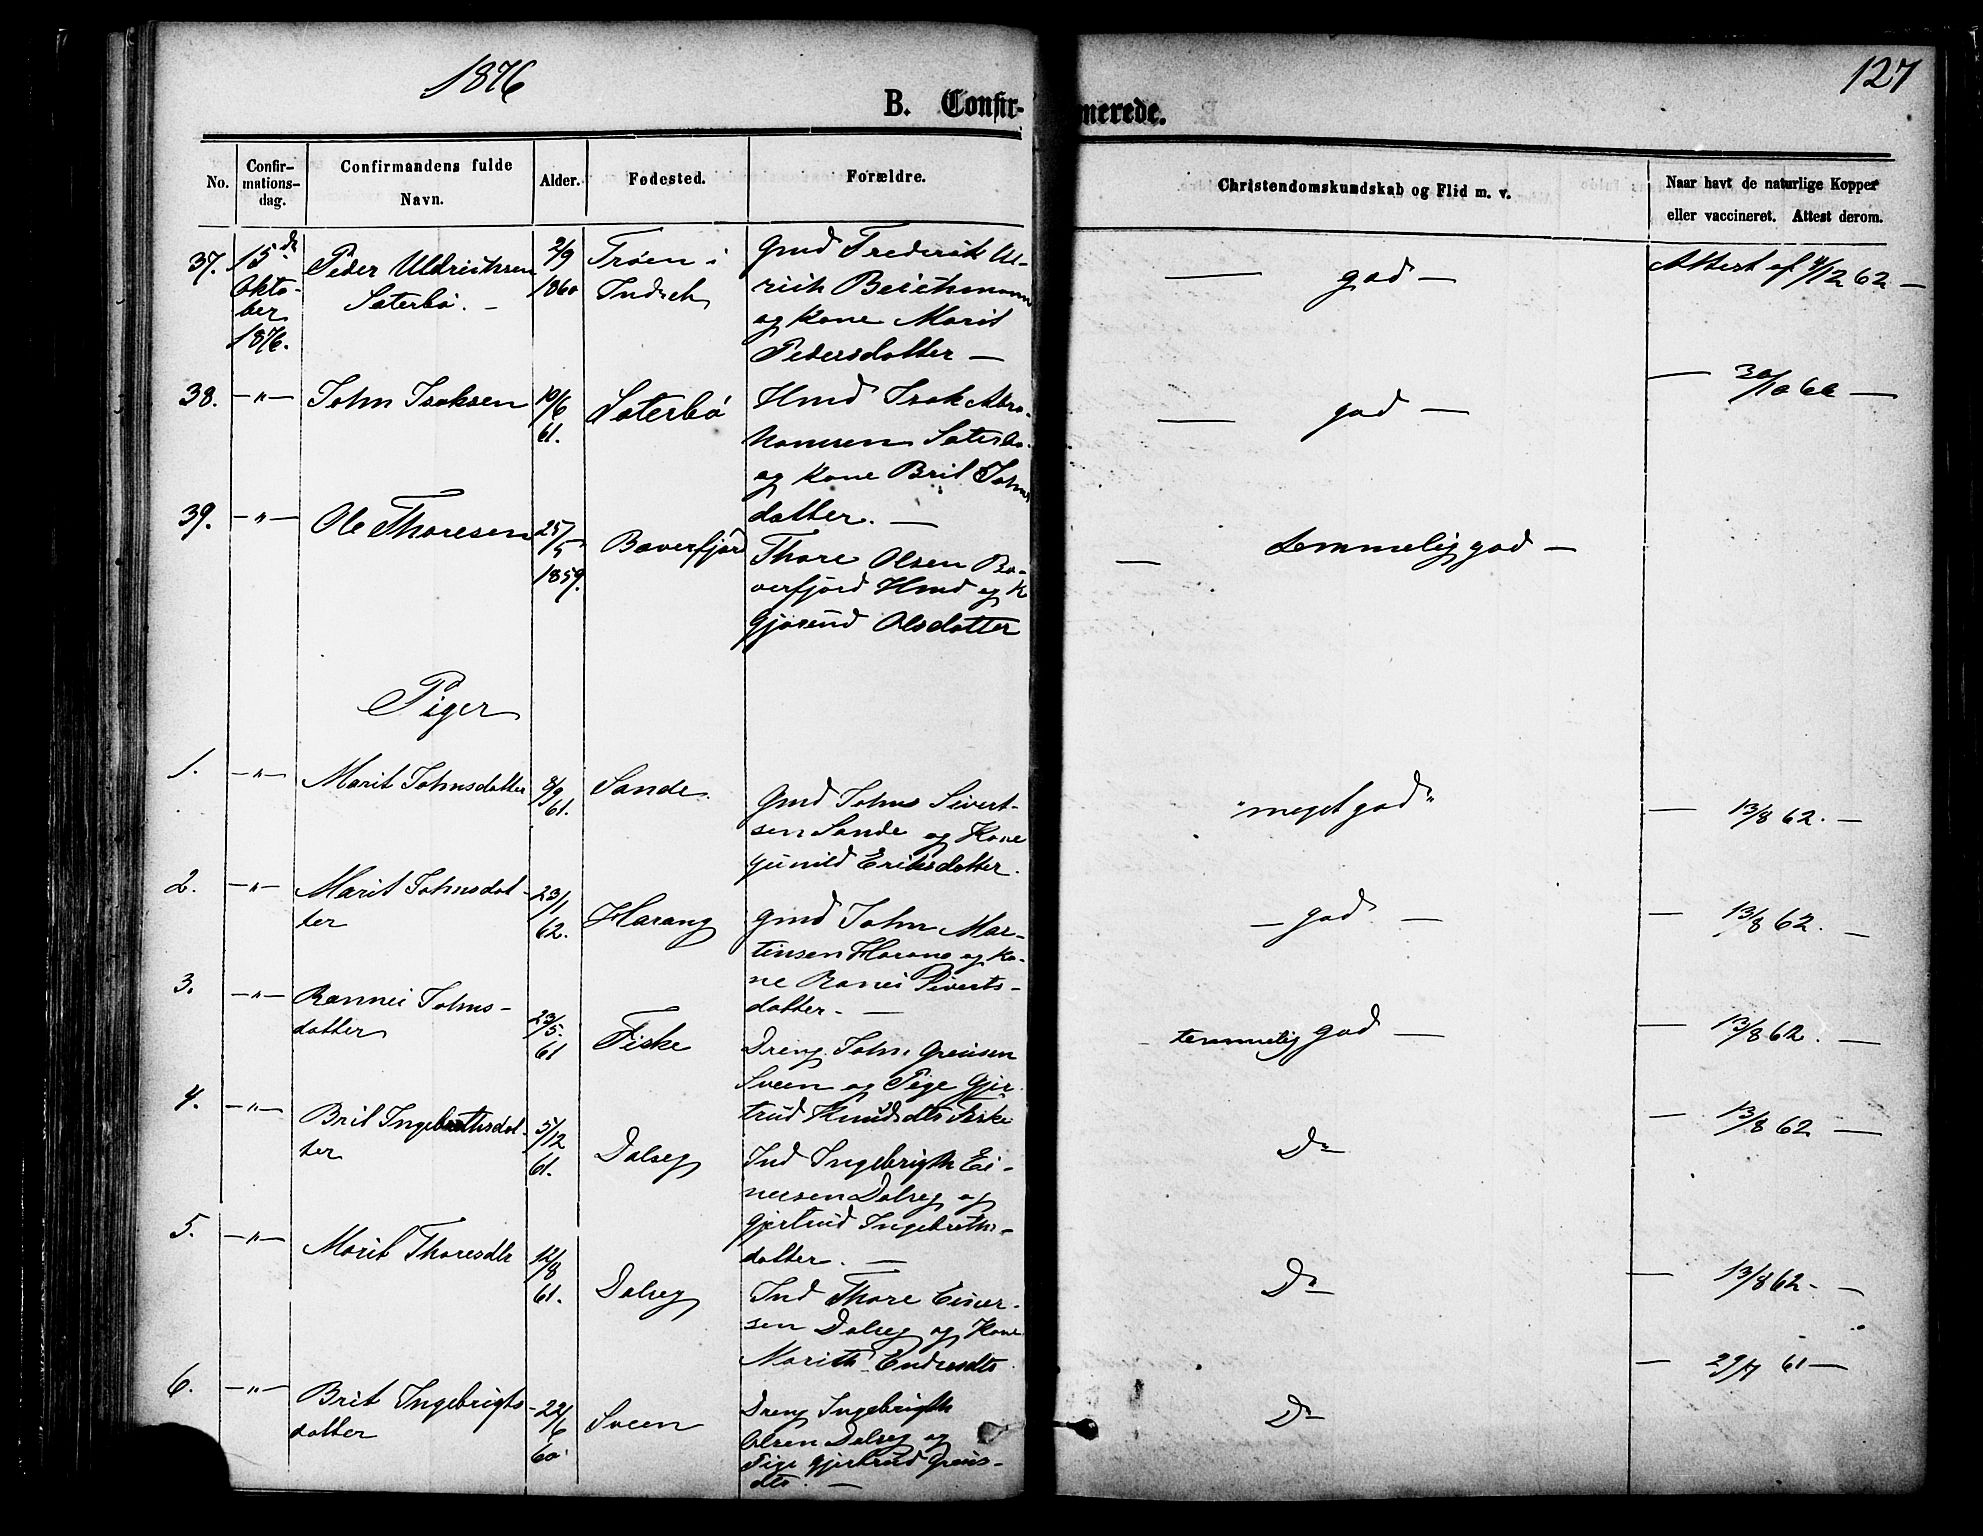 1876
127
B. Confir-
merede.
No.
Confir-
mations-
dag.
Confirmandens fulde
Navn.
Alder.
Fødested.
Forældre.
Christendomskundskab og Flid m. v.
Naar havt de naturlige Kopper
eller vaccineret. Attest derom.
37.
15de
Okto-
ber
1876.
Peder Uldriksen
Sæterbø. —
2/9
1860
Trøen i
Indset
Gmd Frederik Ul-
rich Beichmann
og Kone Marit
Pedersdatter —
— god —
Attest af 4/12 62 —
38.
—"—
John Isaksen
10/6
61.
Sæterbø
Hmd Isak Abra-
hamsen Sæterbø
og Kone Brit Johns
datter. —
— god —
— 30/10 62 —
39.
—"—
Ole Thoresen
25/5
1859.
Bæverfjord
Thore Olsen Bæ-
verfjord Hmd og K
Gjørend Olsdatter
— temmelig god —
Piger
1.
—"—
Marit Johnsdatter
8/9
61.
Sande.
Gmd Johns Sivert-
sen Sande og Kone
Gunild Eriksdatter.
"meget god"
— 13/8 62. —
2.
—"—
Marit Johnsdat-
ter
23/1
62.
Harang
Gmd John Mar-
tinsen Harang og Ko-
ne Ranei Siverts-
datter. —
— god —
— 13/8 62. —
3.
—"—
Rannei Johns-
datter
23/5.
61
Fiske
Dreng John Greisen
Sveen og Pige Gjer-
trud Knudsdtr Fiske
temmelig god —
— 13/8 62. —
4.
—"—
Brit Ingebrethsdat-
ter
5/12
61.
Dalseg
Ind Ingebrigth Ei-
nersen Dalseg og
Gjertrud Ingebreths-
datter. —
Do
— 13/8 62 —
5.
—"—
Marit Thoresdtr
12/8
61.
Dalseg
Ind Thore Einer-
sen Dalseg og Kone
Marith Endresdtr
Do
— 13/8 62 — —
6.
—"—
Brit Ingebrigts-
datter
22/6
60
Sveen
Dreng Ingebrigth
Olsen Dalseg og
Pige Gjertrud Greis-
dtr. —
Do
61 —